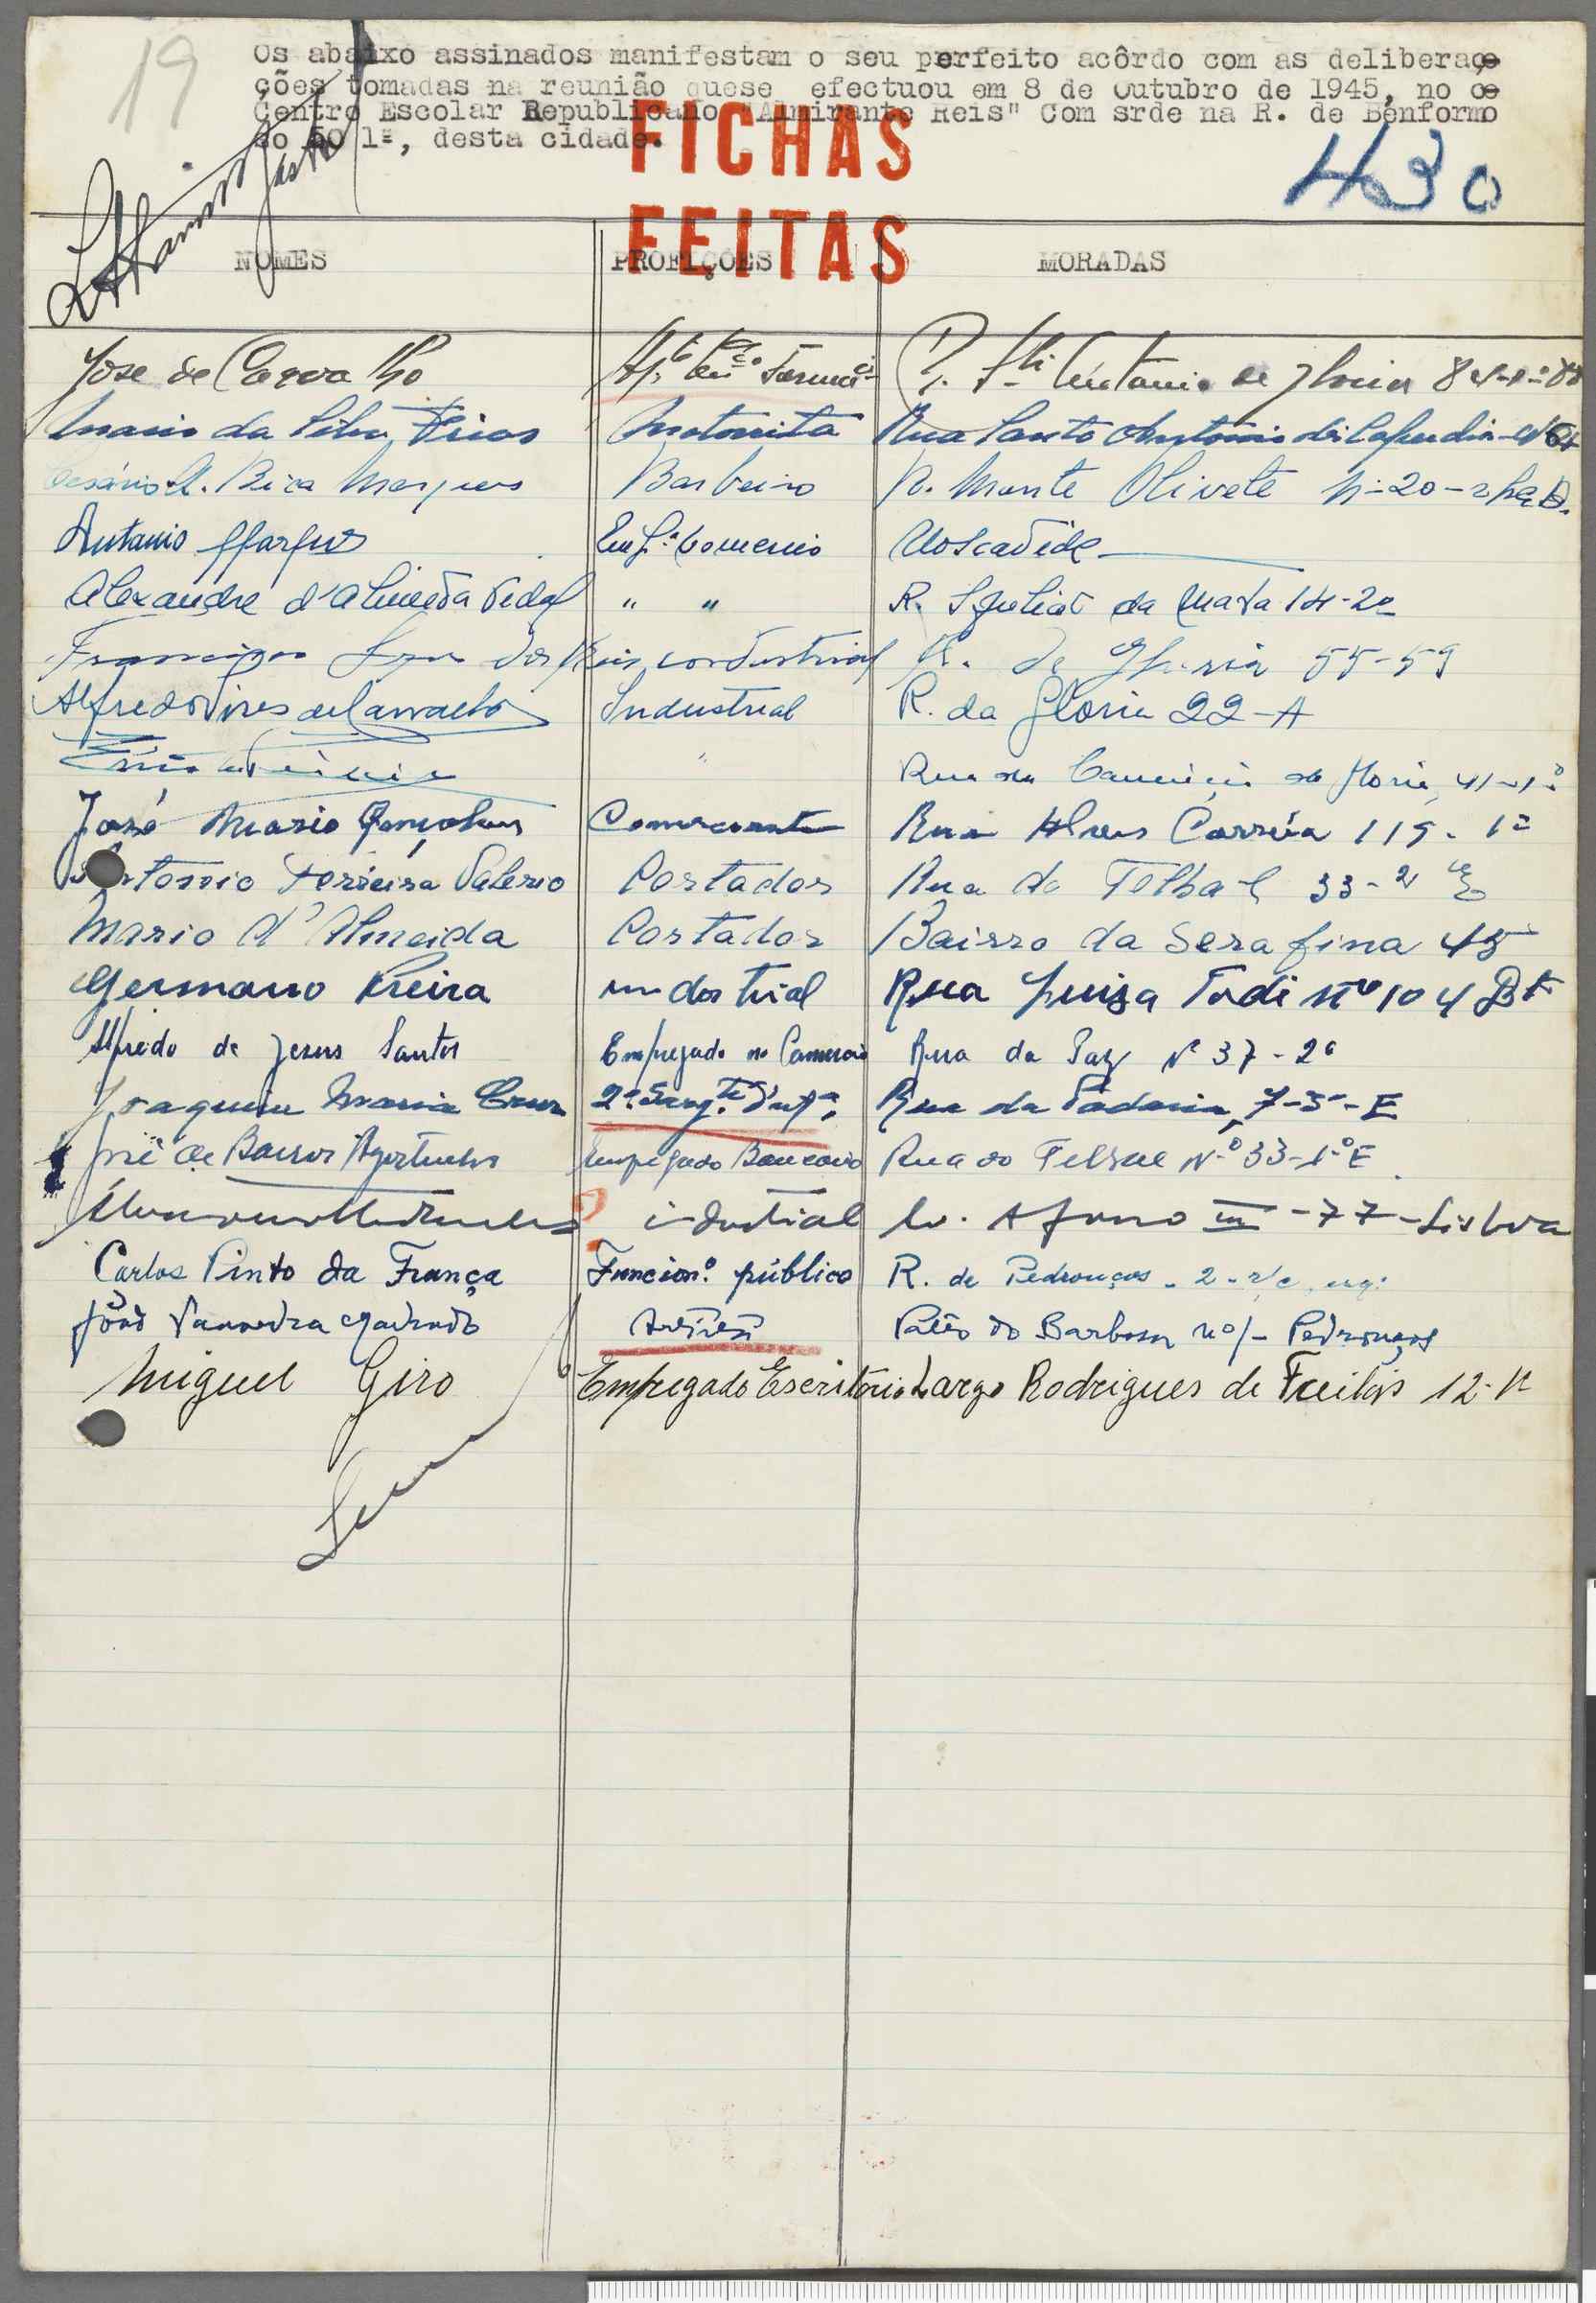 19
Os abaixo assinados manifestam o seu perfeito acôrdo com as deliberaçe
ções tomadas na reunião quese efectuou em 8 de Outubro de 1945, no ce
Centro Escolar Republicano "Almirante Reis" Com srde na R. de Benformo
so 50 1º, desta cidade.
FICHAS
FEITAS
430
NOMES PROFIÇOES MORADAS
José de Carvalho
Mario da Silva Frias Motorista Rua Santo Antonio da
Cesário A. Bica Marques Barbeiro R. Monte Olivete Nº 20
Antonio Emp. Comercio Moscavide
Alexandre d'Almeida Vidal " " R. da Mata 14-2º
Francisco dos Reis industrial R. da Gloria 55-59
Alfredo Pires de Carvalho Industrial R. da Gloria 22-A
" Rua da da Gloria, 41-1º
José Mario Gonçalves Comerciante Rua Alves Corrêa 119-1º
Antonio Ferreira Valerio Cortador Rua do Telhal 33-2º E
Mario d'Almeida Cortador Bairro da Serafina 45
Germano Vieira undostrial Rua Luiza Todi nº 104
Alfredo de Jesus Santos Empregado no Comercio Rua da Paz Nº 37-2º
Joaquim Maria Cruz 2º Sargtº Rua da Padaria, 7-3º-E
José de Barros Empregado Bancario Rua do Telhal Nº 33-1º E
industrial Av. Afonso III-77-Lisboa
Carlos Pinto da França Funcionº público R. de Pedrouços-2-r/c
João Machado Páteo do Barbosa Pedrouços
Miguel Giro Empregado Escritório Largo Rodrigues de Freitas 12